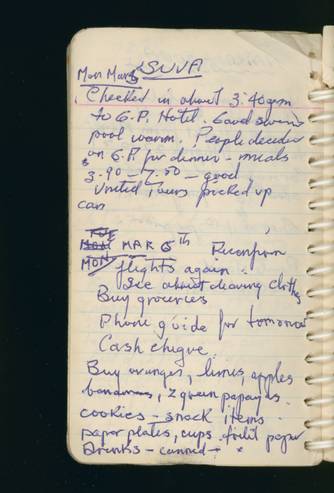 Mon Mar 5 SUVA
Checked in about 3:40pm
to G.P. Hotel. Good swim
pool warm. People decided
on G.P. for dinner - meals
3.90 - 7.50 - good
United Tours picked up
can
TUE
MON MAR 6th Reconfirm
MON flights again.
See about cleaning clothes
Buy groceries
Phone guide for tomorrow
Cash cheque.
Buy oranges, limes, apples
bananas, 2 green papayas.
cookies - snack items.
paper plates, cups. toilet paper
Drinks - canned -